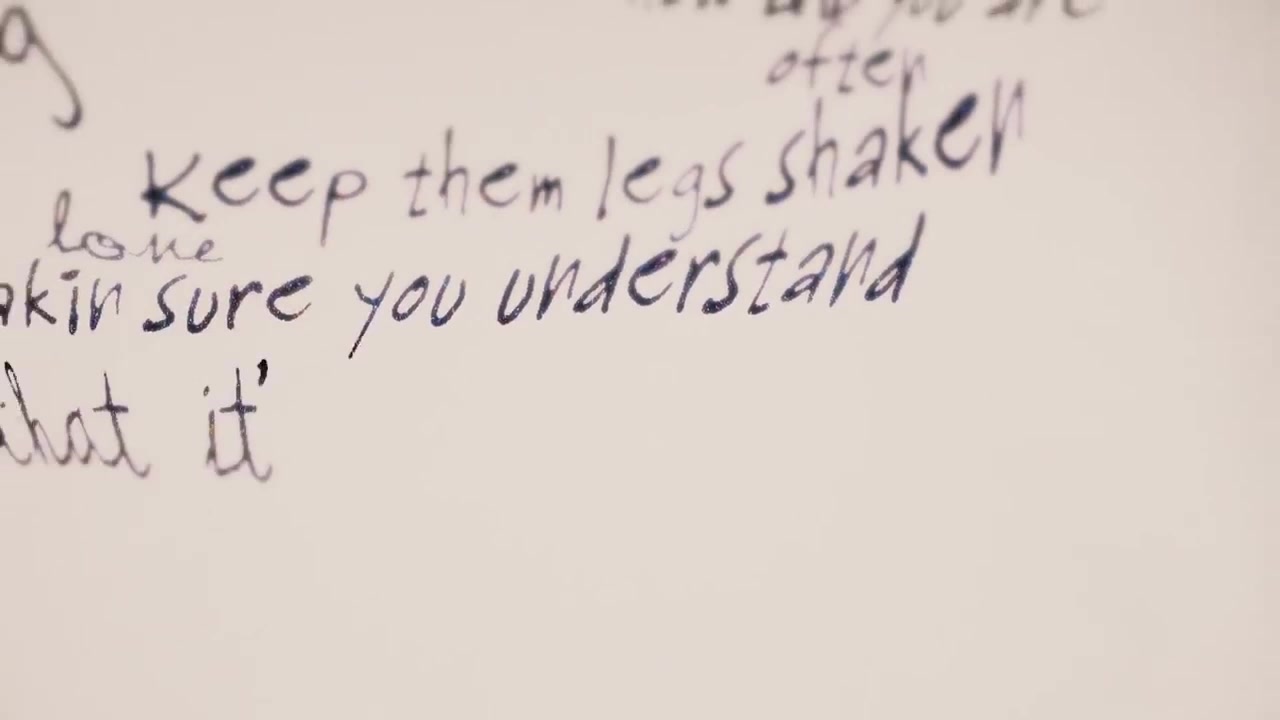 you are
often
Keep them legs shaken
love
akin sure you understand
that it'